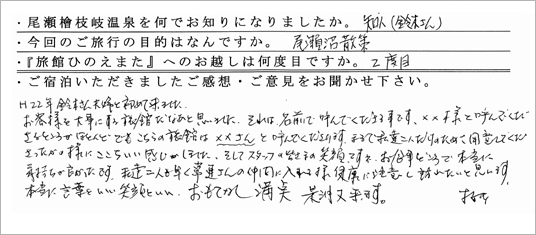 ・尾瀬檜枝岐温泉を何でお知りになりましたか。知人(鈴木さん)
・今回のご旅行の目的はなんですか。尾瀬沼散策
・『旅館ひのえまた』へのお越しは何度目ですか。2度目
・ご宿泊いただきましたご感想・ご意見をお聞かせ下さい。
H22年鈴木さん夫婦と初めて来ました。
お客様を大事にする旅館だなあと思いました。それは、名前で呼んでくださる事です、××様と呼んでくだ
さるところがほとんどですがこちらの旅館は××さんと呼んでくださります。まるで私達二人だけのために用意してくだ
さったかの様にここちいい感じがしました、そしてスタッフの皆さんの笑顔です。お台所どころで本当に
気持ちが良かったです。私達二人も早く常連さんの仲間に入れる様健康に注意して訪れたいと思います。
本当に言葉といい笑顔といい、おもてなし満点 是非又来ます。